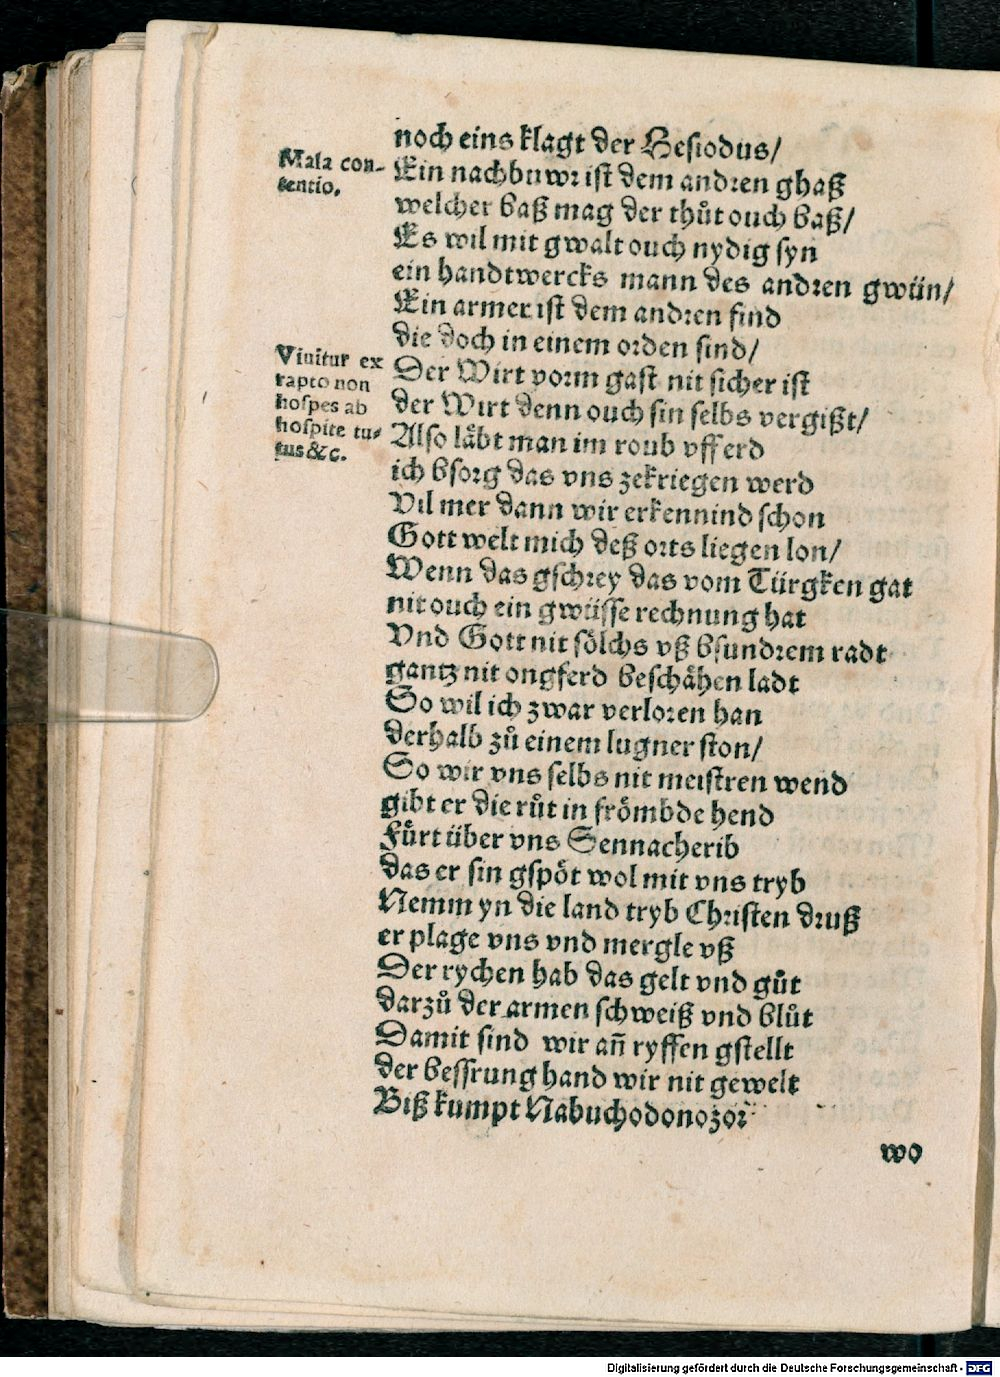 noch eins klagt der Hesiodus/
Mala con-
tentio.
Ein nachbuwr ist dem andren ghaß
welcher baß mag der thůt ouch baß/
Es wil mit gwalt ouch nydig syn
ein handtwercks mann des andren gwün/
Ein armer ist dem andren find
die doch in einem orden sind/
Viuitur ex
rapto non
hospes ab
hospite tu-
tus &c.
Der Wirt vorm gast nit sicher ist
der Wirt denn ouch sin selbs vergißt/
Also låbt man im roub vff erd
ich bsorg das vns zekriegen werd
Vil mer dann wir erkennind schon
Gott welt mich deß orts liegen lon/
Wenn das gschrey das vom Türgken gat
nit ouch ein gwüsse rechnung hat
Vnd Gott nit sölchs vß bsundrem radt
gantz nit ongferd beschåhen ladt
So wil ich zwar verloren han
derhalb zů einem lugner ston/
So wir vns selbs nit meistren wend
gibt er die růt in frömbde hend
Fůrt über vns Sennacherib
das er sin gspöt wol mit vns tryb
Nemm yn die land tryb Christen druß
er plage vns vnd mergle vß
Der rychen hab das gelt vnd gůt
darzů der armen schweiß vnd blůt
Damit sind wir an̄ ryffen gstellt
der bessrung hand wir nit gewelt
Biß kumpt Nabuchodonozor
wo
Digitalisierung gefördert durch die Deutsche Forschungsgemeinschaft - DFG